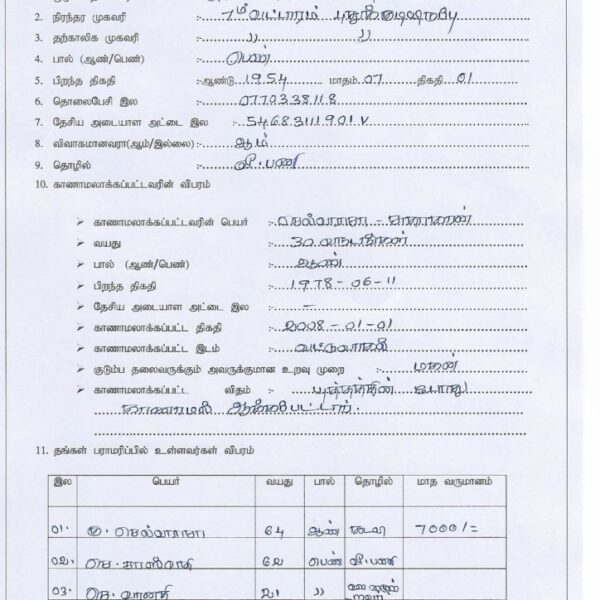 2. நிரந்தர முகவரி :- 7ம் வட்டாரம்
3. தற்காலிக முகவரி ,, ,,
4. பால் (ஆண்/பெண்) பெண்
5. பிறந்த திகதி :-ஆண்டு 1954 மாதம் 07 திகதி 01
6. தொலைபேசி இல 0770338118
7. தேசிய அடையாள அட்டை இல :-
8. விவாகமானவரா(ஆம்/இல்லை):- ஆம்
9. தொழில் :- வீ.பணி
10. காணாமலாக்கப்பட்டவரின் விபரம்
➤ காணாமலாக்கப்பட்டவரின் பெயர் :- செல்வராசா -
➤ வயது :- 30
➤ பால் (ஆண்/பெண்) :- ஆண்
➤ பிறந்த திகதி :- 1978-06-11
➤ தேசிய அடையாள அட்டை இல :- –
➤ காணாமலாக்கப்பட்ட திகதி :- 2008-01-01
➤ காணாமலாக்கப்பட்ட இடம் :- வட்டுவாகல்
➤ குடும்ப தலைவருக்கும் அவருக்குமான உறவு முறை :- மகன்
➤ காணாமலாக்கப்பட்ட விதம் :- யுத்தத்தின் போது
காணாமல்
11. தங்கள் பராமரிப்பில் உள்ளவர்கள் விபரம்
இல பெயர் வயது பால் தொழில் மாத வருமானம்
01. செல்வராசா 64 ஆண் கூலி 7000/=
02. செ. 62 பெண் வீ.பணி
03. செ. வாணி 21 ,,